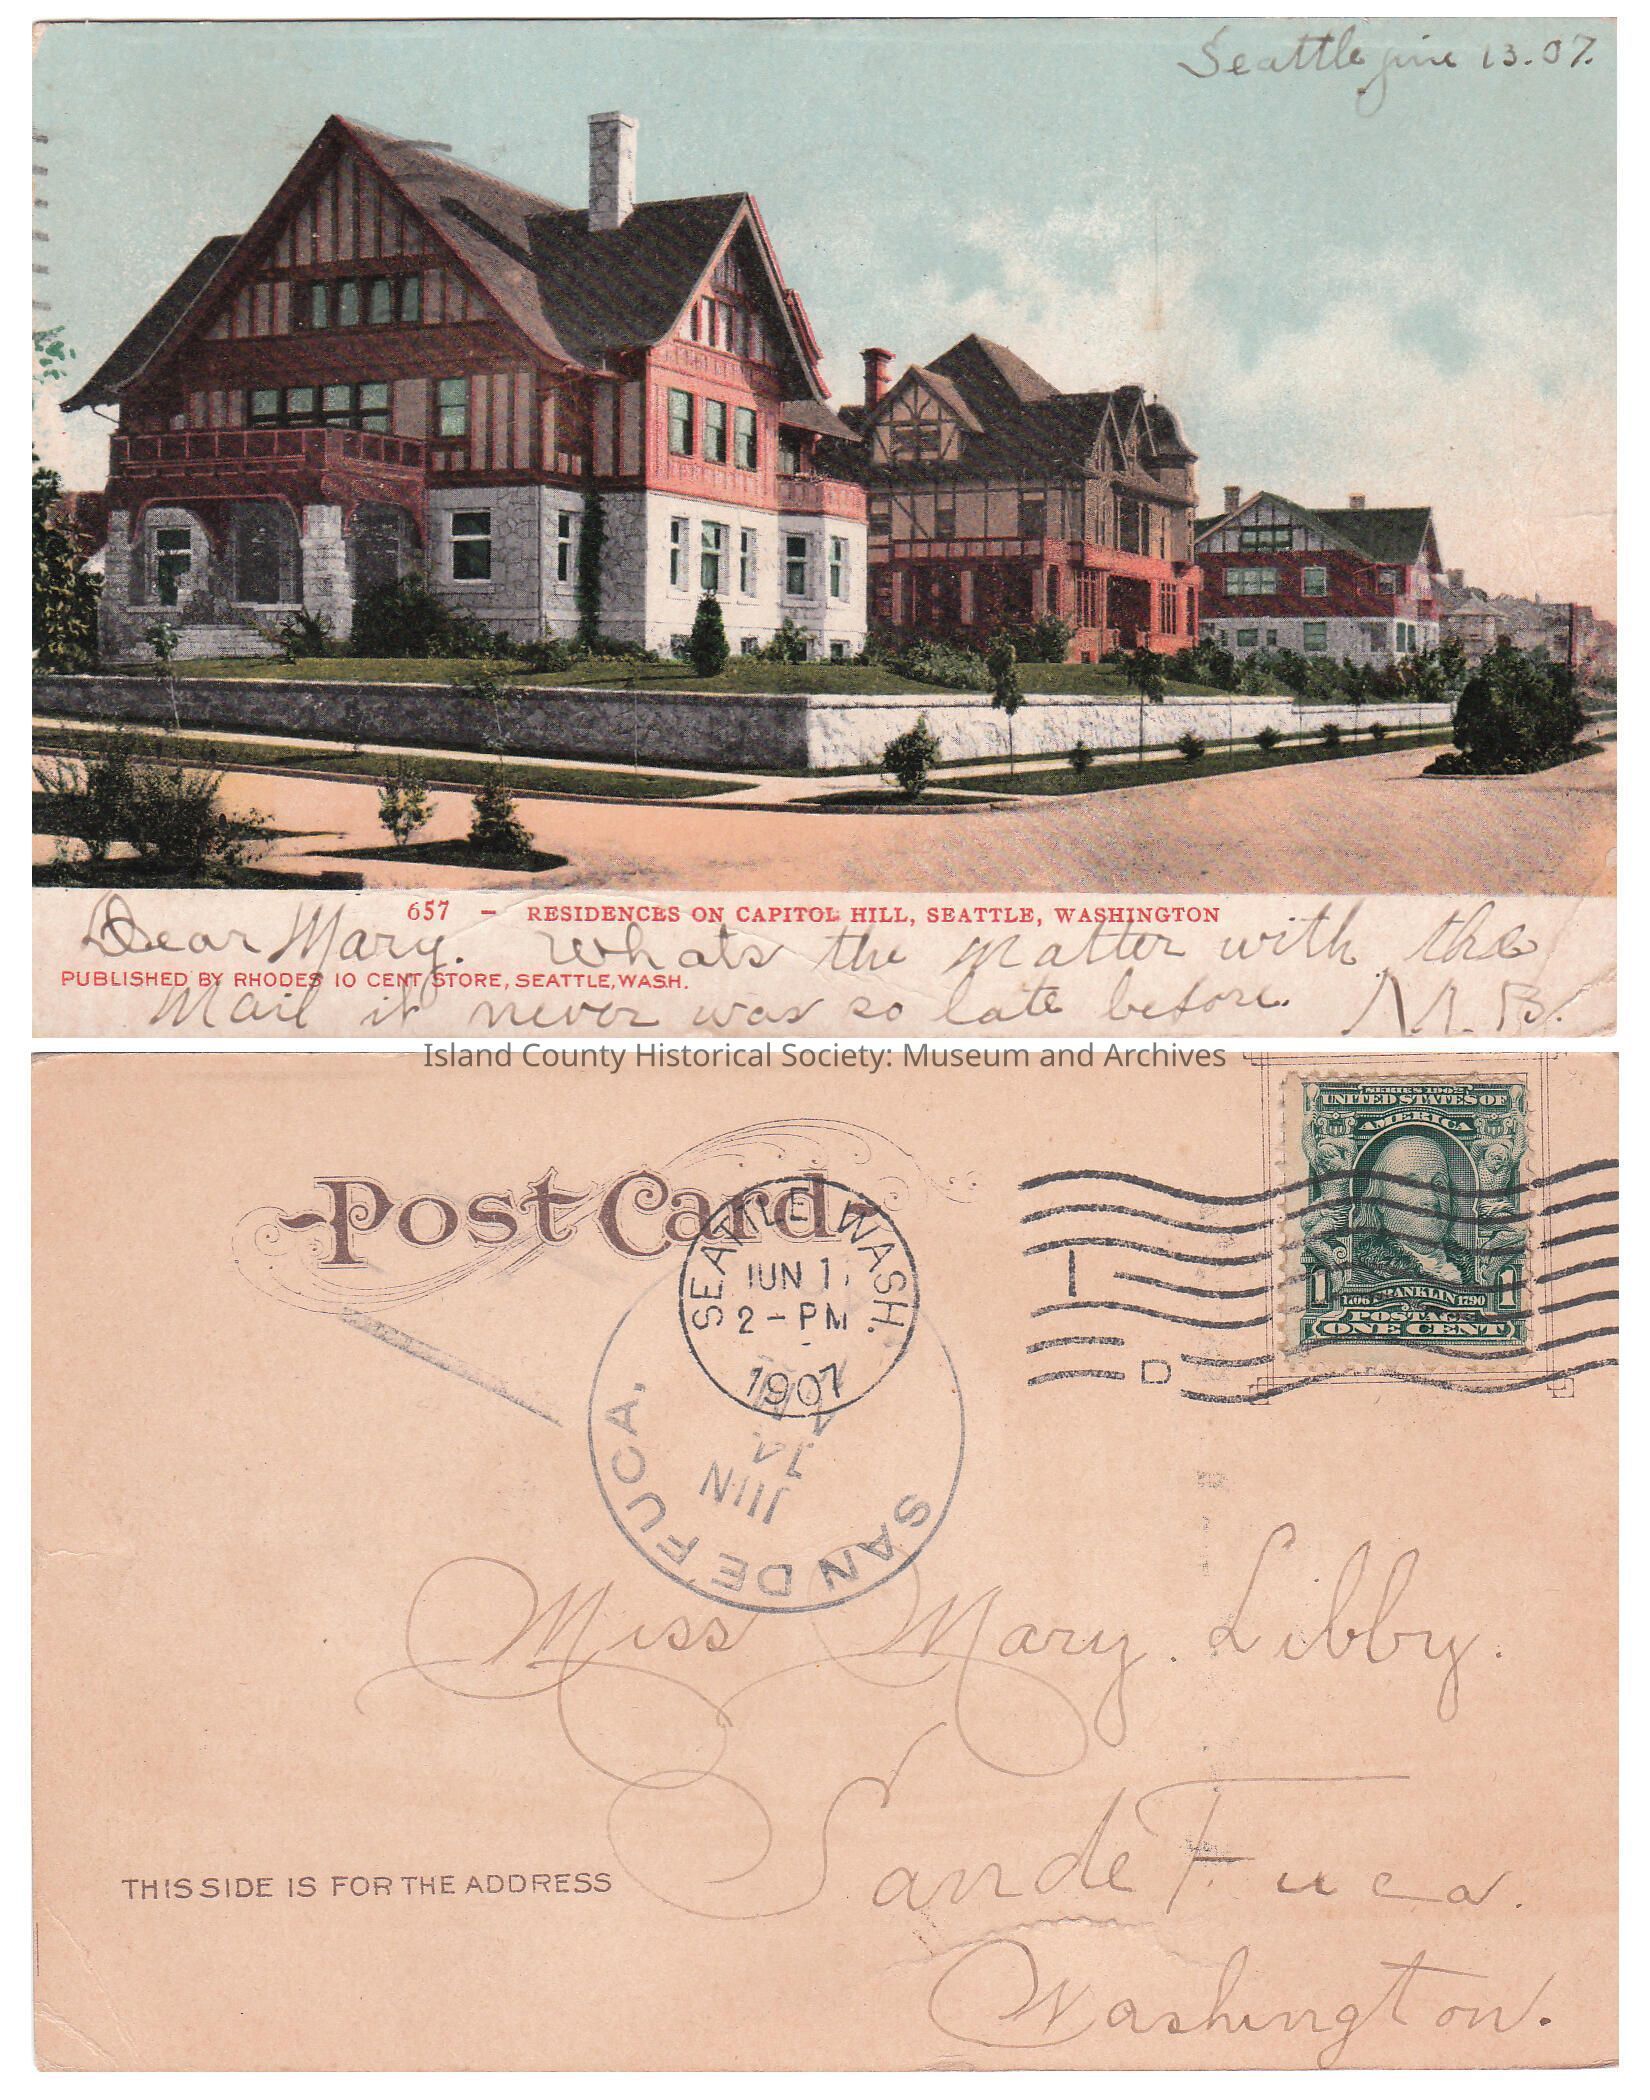 Seattle June 13.07.
657 - RESIDENCES ON CAPITOL HILL, SEATTLE, WASHINGTON
Dear Mary. Whats the Matter with the
PUBLISHED BY RHODES 10 CENT STORE, SEATTLE, WASH.
Mail it never was so late before.
Island County Historical Society: Museum and Archives
SERIES 1902
UNITED STATES OF
AMERICA
Post Card
SEATTLE WASH.
JUN 1
2-PM
1907
1
D
1 1706 FRANKLIN 1790 1
POSTAGE
ONE CENT
JUN
14
SAN DE FUCA.
Miss Mary. Libby.
San de Fuca.
THIS SIDE IS FOR THE ADDRESS
Washington.